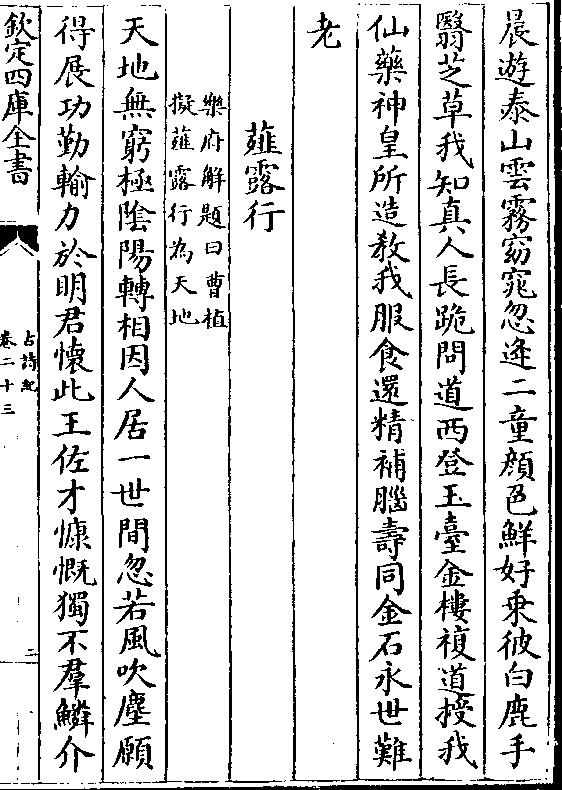 晨遊泰山雲霧窈窕忽逢二童顔色鮮好乗彼白鹿手
翳芝草我知真人長跪問道西登玉臺金樓複道授我
仙藥神皇所造教我服食還精補腦壽同金石永世難
老
薤露行
樂府解題曰曹植
擬薤露行為天地
天地無窮極陰陽轉相因人居一世間忽若風吹塵願
得展功勤輸力於明君懷此王佐才慷慨獨不羣鱗介
欽定四庫全書
古詩紀
卷二十三
三